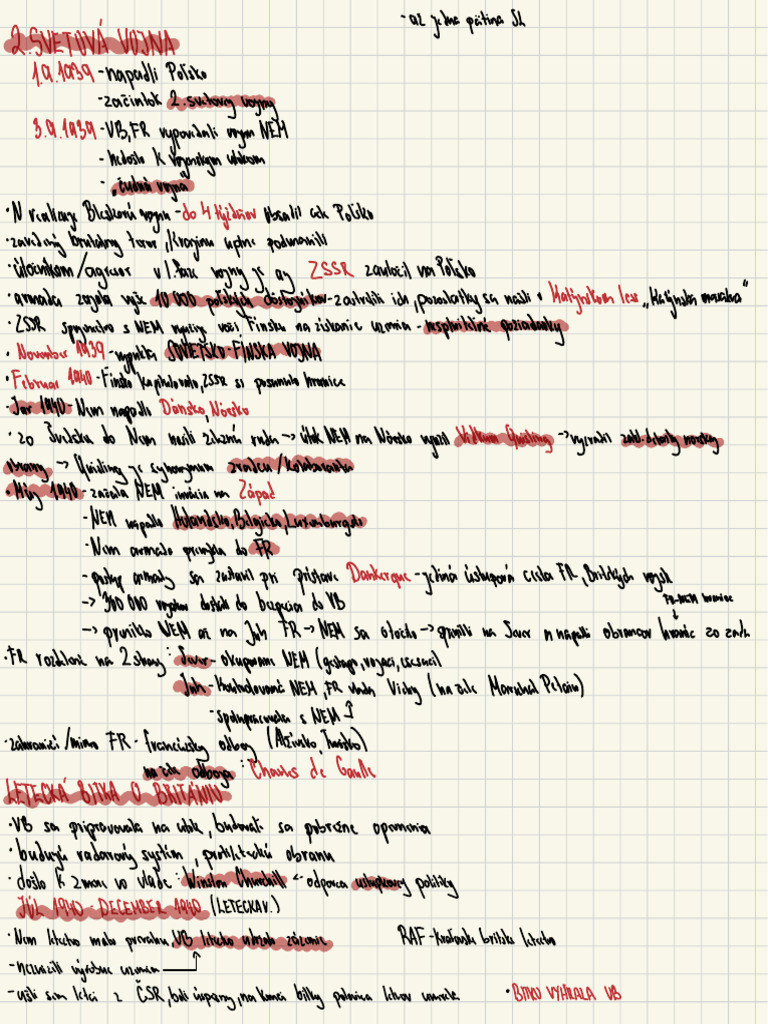 - až jedna pätina SR
2. SVETOVÁ VOJNA
1.9.1939 - napadli Poľsko
- začiatok 2. svetovej vojny
3.9.1939 - VB, FR vypovedali vojnu NEM
- nedošlo k vojenským útokom
- "čudná vojna"
• N realizuje Bleskovú vojnu - do 4 týždňov porazil celé Poľsko
• zavedený brutálny teror, krajinu úplne podmanili
• útočníkom/agresor v 1. fáze vojny je aj ZSSR zaútočil na Poľsko
• armáda zajala vyše 10 000 poľských dôstojníkov - zastrelili ich, pozostatky sa našli v Katýnskom lese "Katýnsky masaker"
• ZSSR spojenectvo s NEM voči Fínsku na získanie územia - nesplniteľné požiadavky
• November 1939 - vypukla SOVIETSKO-FÍNSKA VOJNA
• Február 1940 - Fínsko kapitulovalo, ZSSR si posunulo hranice
• Jar 1940 - Nem napadlo Dánsko, Nórsko
• zo Švédska do Nem nosili železnú rudu -> útok NEM na Nórsko Vidkun Quisling -> vyzradil nórskej
obrany -> Quisling je synonymum zradcu/kolaboranta
• Máj 1940 - začala NEM invázia na Západ
- NEM napadlo Holandsko, Belgicko, Luxembursko
- Nem armáda prenikla do FR
- postup armády sa zastavil pri prístave Dunkerque - jediná ústupová cesta FR, Britských vojsk
FR-NEM hranice
-> 300 000 vojakov dostali do bezpečia do VB
-> preniklo NEM až na Juh FR -> NEM sa otočilo -> na Sever a napadli obrancov hraníc zo zadu
• FR rozdelené na 2 strany: Sever - okupovaní NEM (gestapo, vojaci, esesáci)
Juh - kontrolované NEM, FR vláda Vichy (na čele Maršal Pétain)
- spolupracovala s NEM
• zahraničí/mimo FR - francúzsky odboj (Alžírsko, Tunisko)
na čele odboja: Charles de Gaulle
LETECKÁ BITKA O BRITÁNIU
• VB sa pripravovala na útok, budovať sa pobrežné opevnenia
• budujú radarový systém, protileteckú obranu
• došlo k zmene vo vláde: Winston Churchill <- odporca ústupkovej politiky
JÚL 1940 - DECEMBER 1940 (LETECKÁ V.)
• Nem letectvo malo prevahu, VB letectvo zázemie
RAF - kráľovské britské letectvo
- nezničili výrobné územia
- ušli sem letci z ČSR, boli úspešný, na konci bitky polovica letcov umrela
• BITKU VYHRALA VB